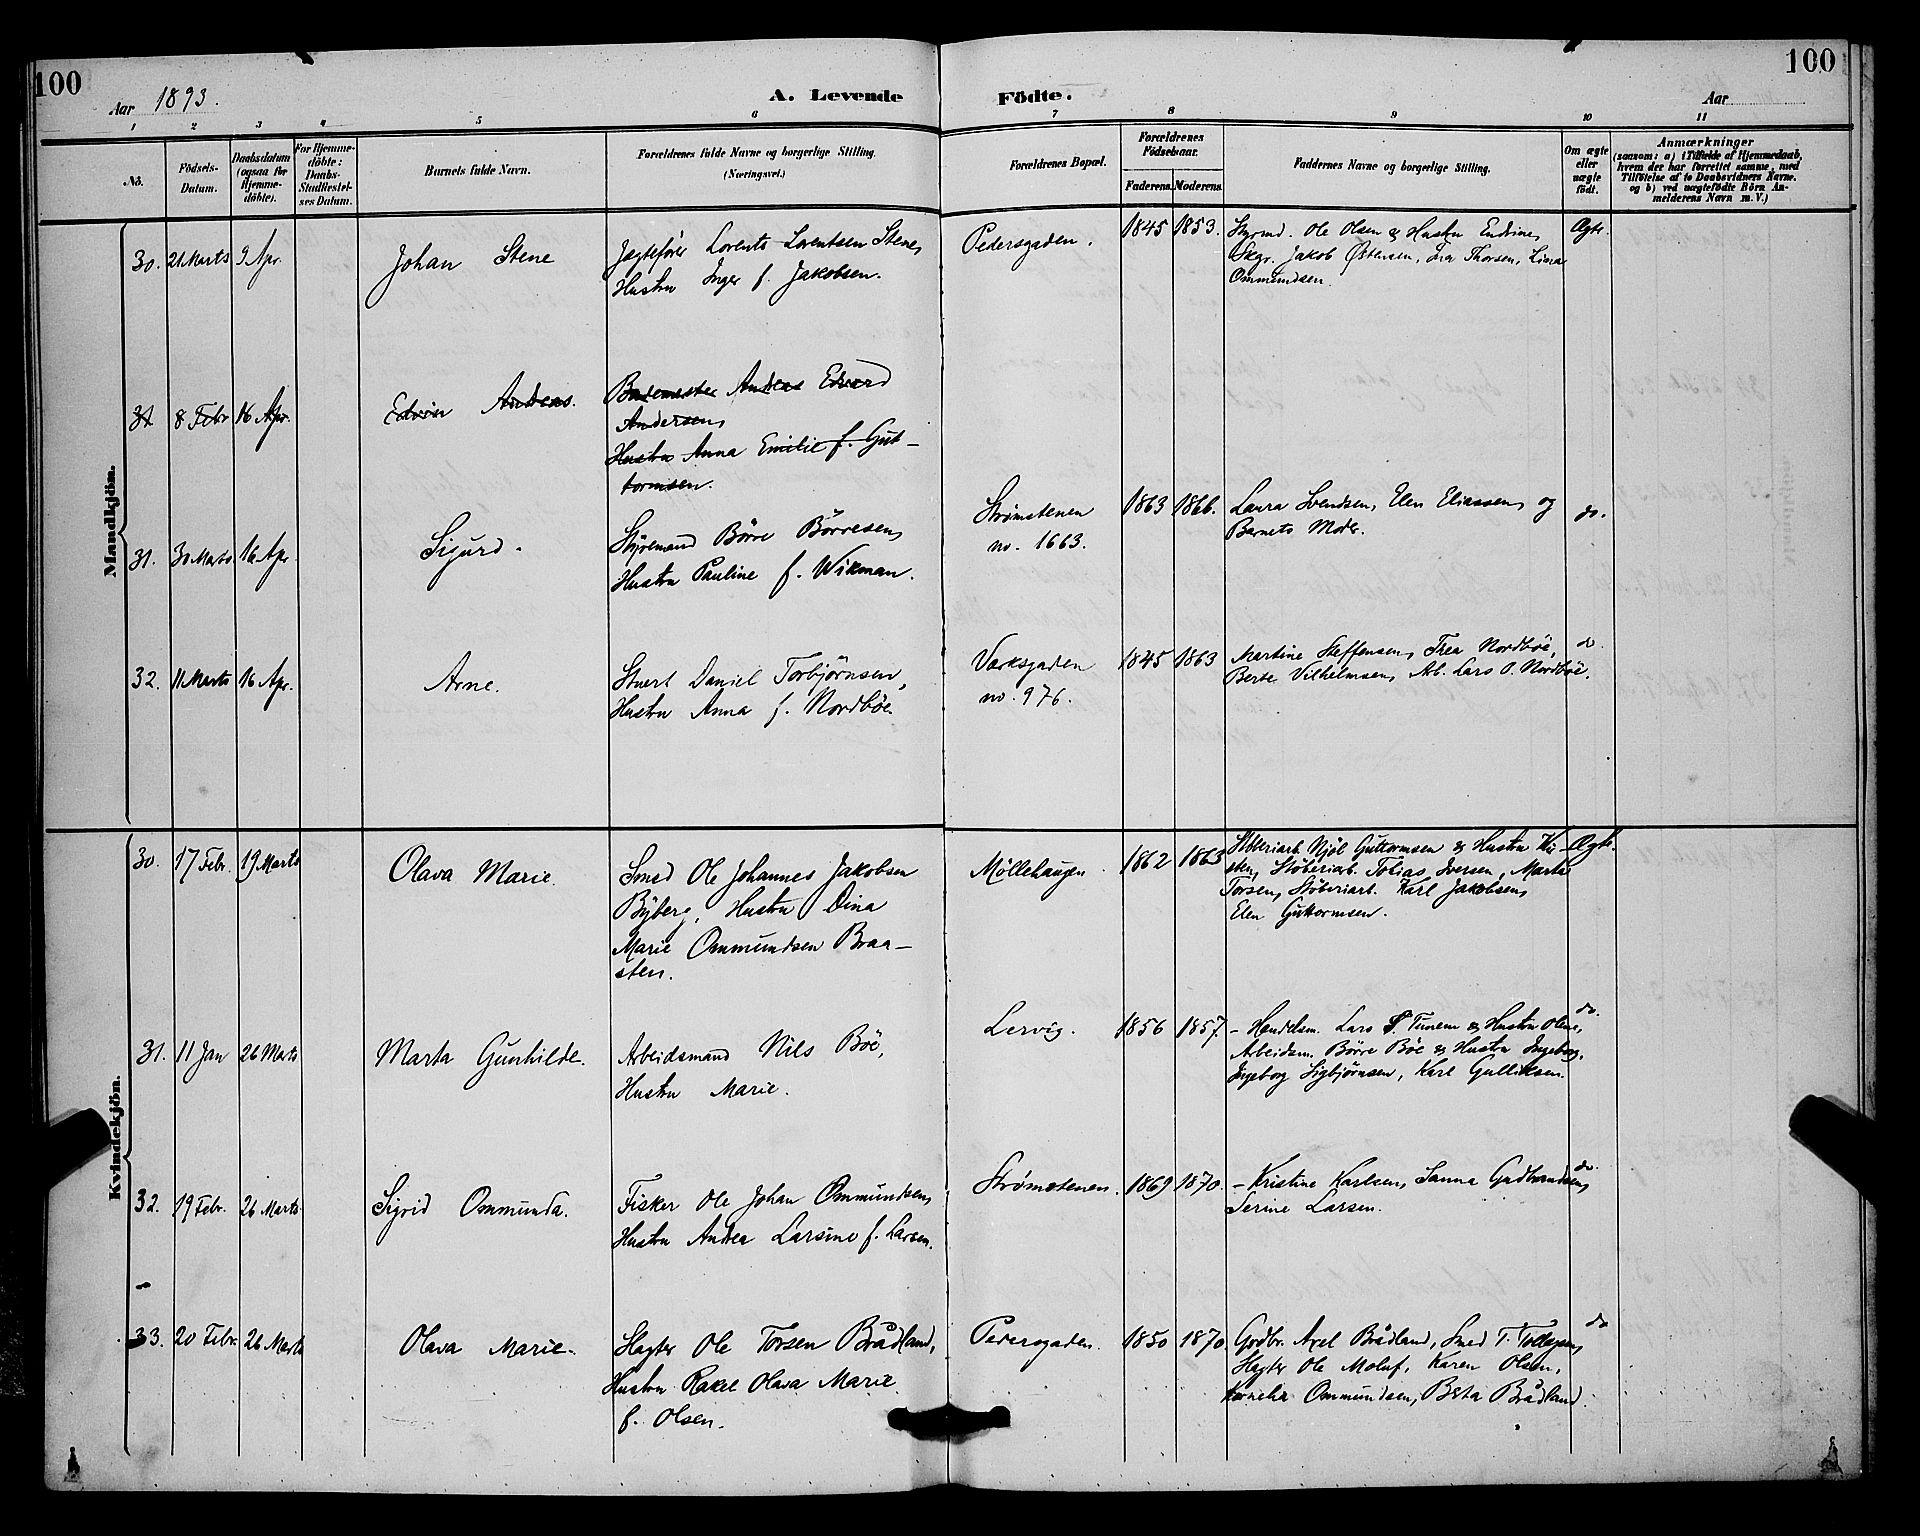 100
100
Aar 1893.
A. Levende
Födte.
Aar
1 2 3 4 5 6 7 8 9 10 11
No.
Födsels-
Datum.
Daabsdatum
(ogsaa for
Hjemme-
döbte).
For Hjemme-
döbte:
Daabs-
Stadfæstel-
ses Datum.
Barnets fulde Navn.
Forældrenes fulde Navne og borgerlige Stilling.
(Næringsvei.)
Forældrenes Bopæl.
Forældrenes
Födselsaar.
Faderens. Moderens.
Faddernes Navne og borgerlige Stilling.
Om ægte
eller
uægte
födt.
Anmærkninger
(saasom: a) i Tilfælde af Hjemmedaab,
hvem der har forrettet samme, med
Tilföielse af to Daabsvidners Navne,
og b) ved uægtefödte Börn An-
melderens Navn m. V.)
Mandkjön.
30. 21 Marts 9 Apr. Johan Stene
Jægtefører Lorents Lorentsen Stene,
Hustru Inger f. Jakobsen.
Pedersgaden. 1845 1853.
Styrmd. Ole Olsen & Hustru Endrine,
Skgr. Jakob Østensen, Ina Thorsen, Lina
Ommundsen.
Ægte.
31 8 Febr. 16 Apr. Edvin Andreas.
Bademester Andreas Edvard
Andersen,
Hustru Anna Emilie f. Gut-
tormsen.
31. 30 Marts 16 Apr. Sigurd.
Styremand Börre Börresen,
Hustru Pauline f. Wikman.
Strømstenen
no. 1663.
1863 1866.
Laura Svendsen, Elen Eliassen, og
Barnets Moder.
do.
32. 11 Marts 16 Apr. Arne.
Stuert Daniel Torbjørnsen,
Hustru Anna f. Nordböe.
Værksgaden
no. 976.
1845 1863
Martine Steffensen, Trea Nordböe,
Berte Vilhelmsen, Ab. Lars O. Nordböe.
do
Kvindekjön.
30. 17 Febr. 19 Marts Olava Marie.
Smed Ole Johannes Jakobsen
Byberg, Hustru Dina
Marie Ommundsen Braa-
sten.
Möllehaugen 1862 1863
Støberiarb. Njöl Guttormsen & Hustru Ki-
sten, Støberiarb. Tobias Iversen, Marta
Torsen, Støberiarb. Karl Jakobsen,
Elen Guttormsen.
Ægte.
31. 11 Jan 26 Marts Marta Gunhilde.
Arbeidsmand Nils Böe,
Hustru Marie.
Lervig. 1856 1857.
- Handelsm. Lars T. Tunem & Hustru Oline,
Arbeidsm. Börre Böe & Hustru Ingeborg,
Ingeborg Sigbjørnsen, Karl Gulliksen.
do.
32. 19 Febr. 26 Marts Sigrid Ommunda.
Fisker Ole Johan Ommundsen,
Hustru Andrea Larsine f. Larsen.
Strømstenen. 1869 1870.
- Kristine Karlsen, Sanna Gudbrandsen,
Serine Larsen.
do.
33. 20 Febr. 26 Marts Olava Marie.
Slagter Ole Torsen Brådland,
Hustru Rakel Olava Marie
f. Olsen.
Pedersgaden. 1850 1870
Grdbr. Axel Brådland, Smed T. Tollefsen,
Slagter Ole Moluf, Karen Olsen,
Kornelia Ommundsen, Berta Brådland.
do